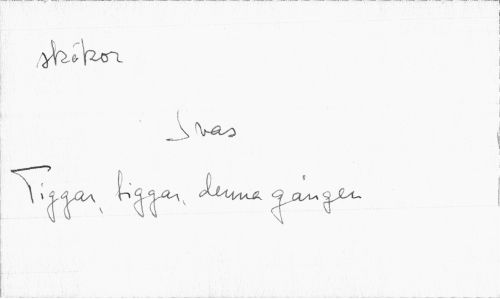 skökor
Ivas
Tiggar, tiggar, denna gången